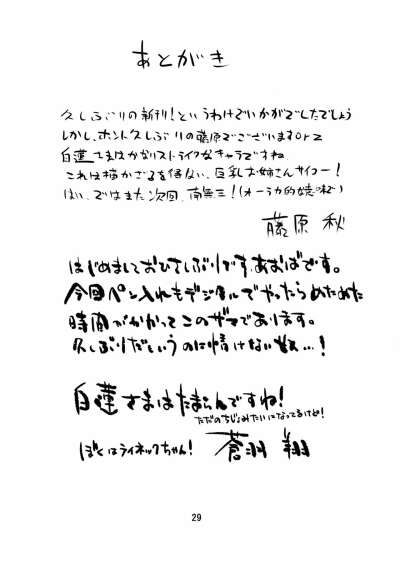 あとがき
久しぶりの新刊！というわけでいかがでしたでしょう
しかし、ホント久しぶりの藤原でございますorz
白蓮さまはかなりストライクなキャラですね
これは描かざるを得ない、巨乳お姉さんサイコー！
はい、ではまた次回、南無三！(オーラカ的な
藤原 秋
はじめましておひさしぶりです、あおばです。
今回ペン入れもデジタルでやったらめためた
時間がかかってこのザマであります。
久しぶりだというのに情けない…！
白蓮さまはたまらんですね！
ただのちじょみたいになってるけど！
ぼくはライネックちゃん！
蒼羽 翔
29